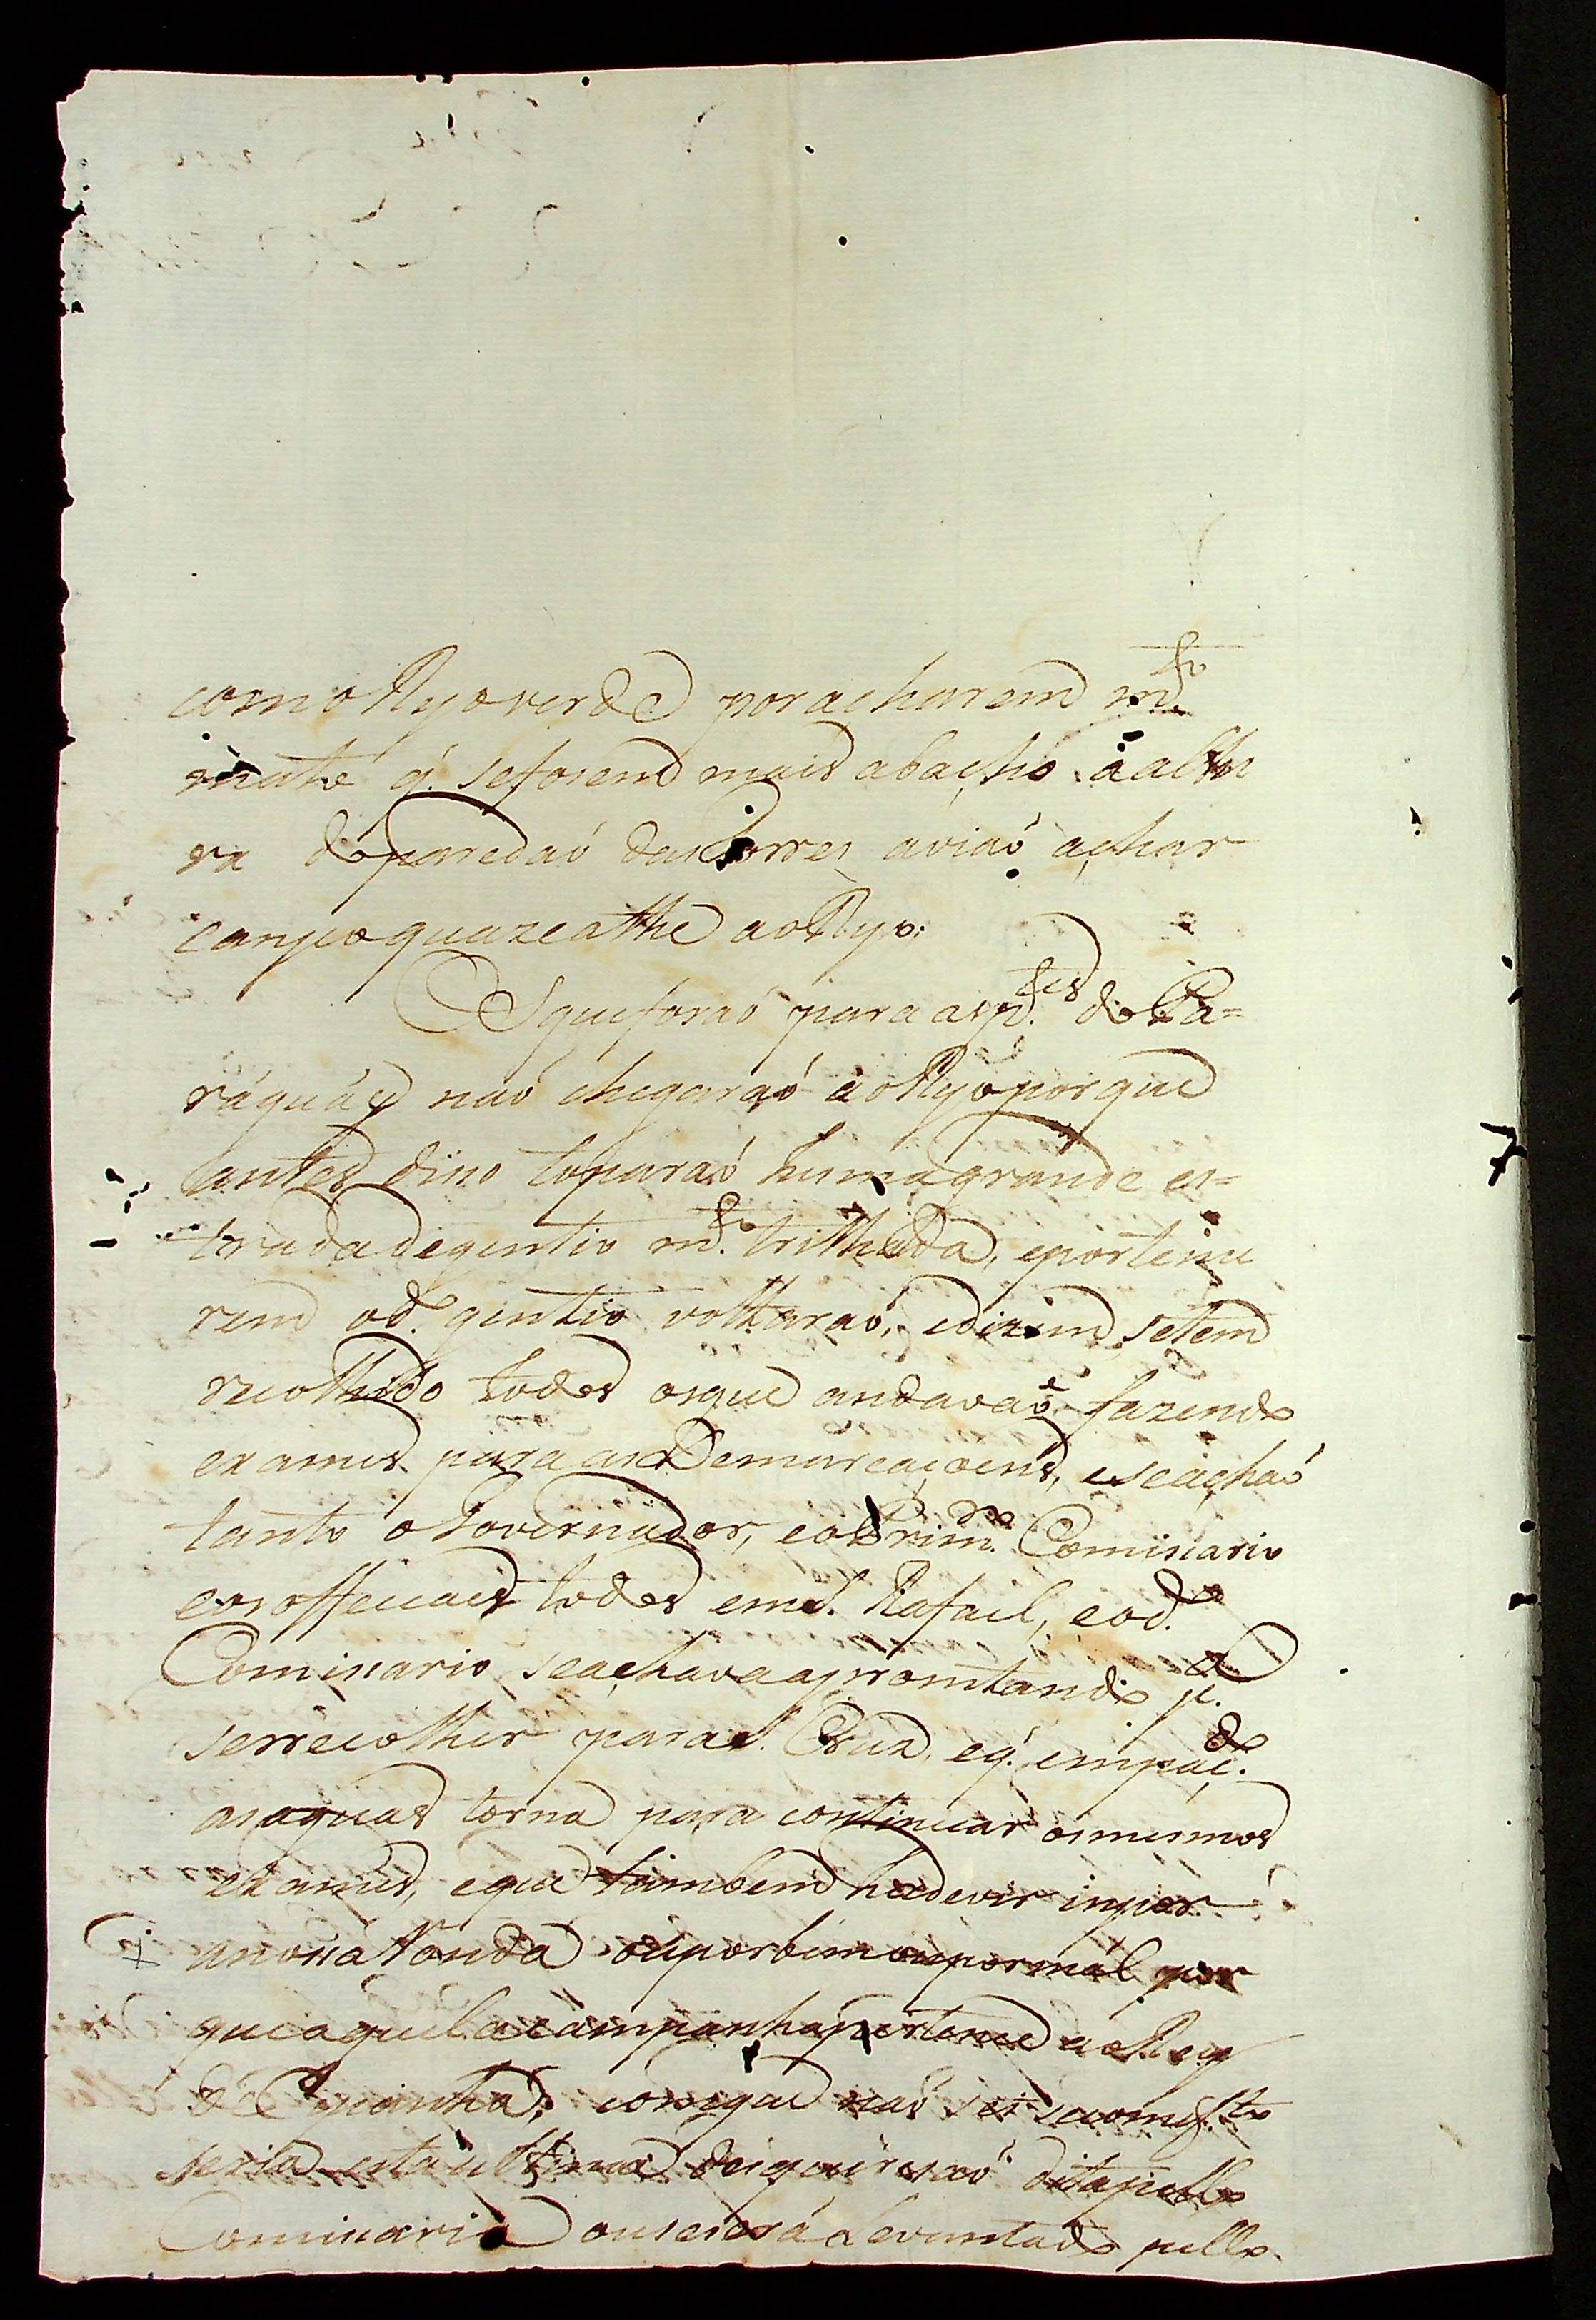 como Ryo verde por acharem m.to
mato q. se forem mais abacho à altu
ra do paredaõ das torres aviaõ achar
campo quaze athe ao Ryo:
Os que foraõ para as p.tes do Pa=
ráguáy naõ chegaraõ ao Ryo porque
antes diso toparaõ huma grande es=
trada de gentio m.to trilhada, e por teme
rem o d.o gentio voltaraõ, e dizem se tem
recolhido todos os que andavaõ fazendo
examis para as Demarcaçoens, e se achaõ
tanto o Governador, e o Prim.ro Comisario
e os offeciais todos em S. Rafael, e o d.o
Comisario se achava apromtando p.a
se recolher para S. Cruz, e q. em pac.do
as aguas torna para continuar os mesmos
examis, e que tambem hade vir in por
a nosa banda ou por bem ou por mal por
que aquela campanha pertence ao Rey
de Espanha; con que naõ sei se com ef.to
seria esta ultima dito pello
Comisario ou se será Levantado pello
7